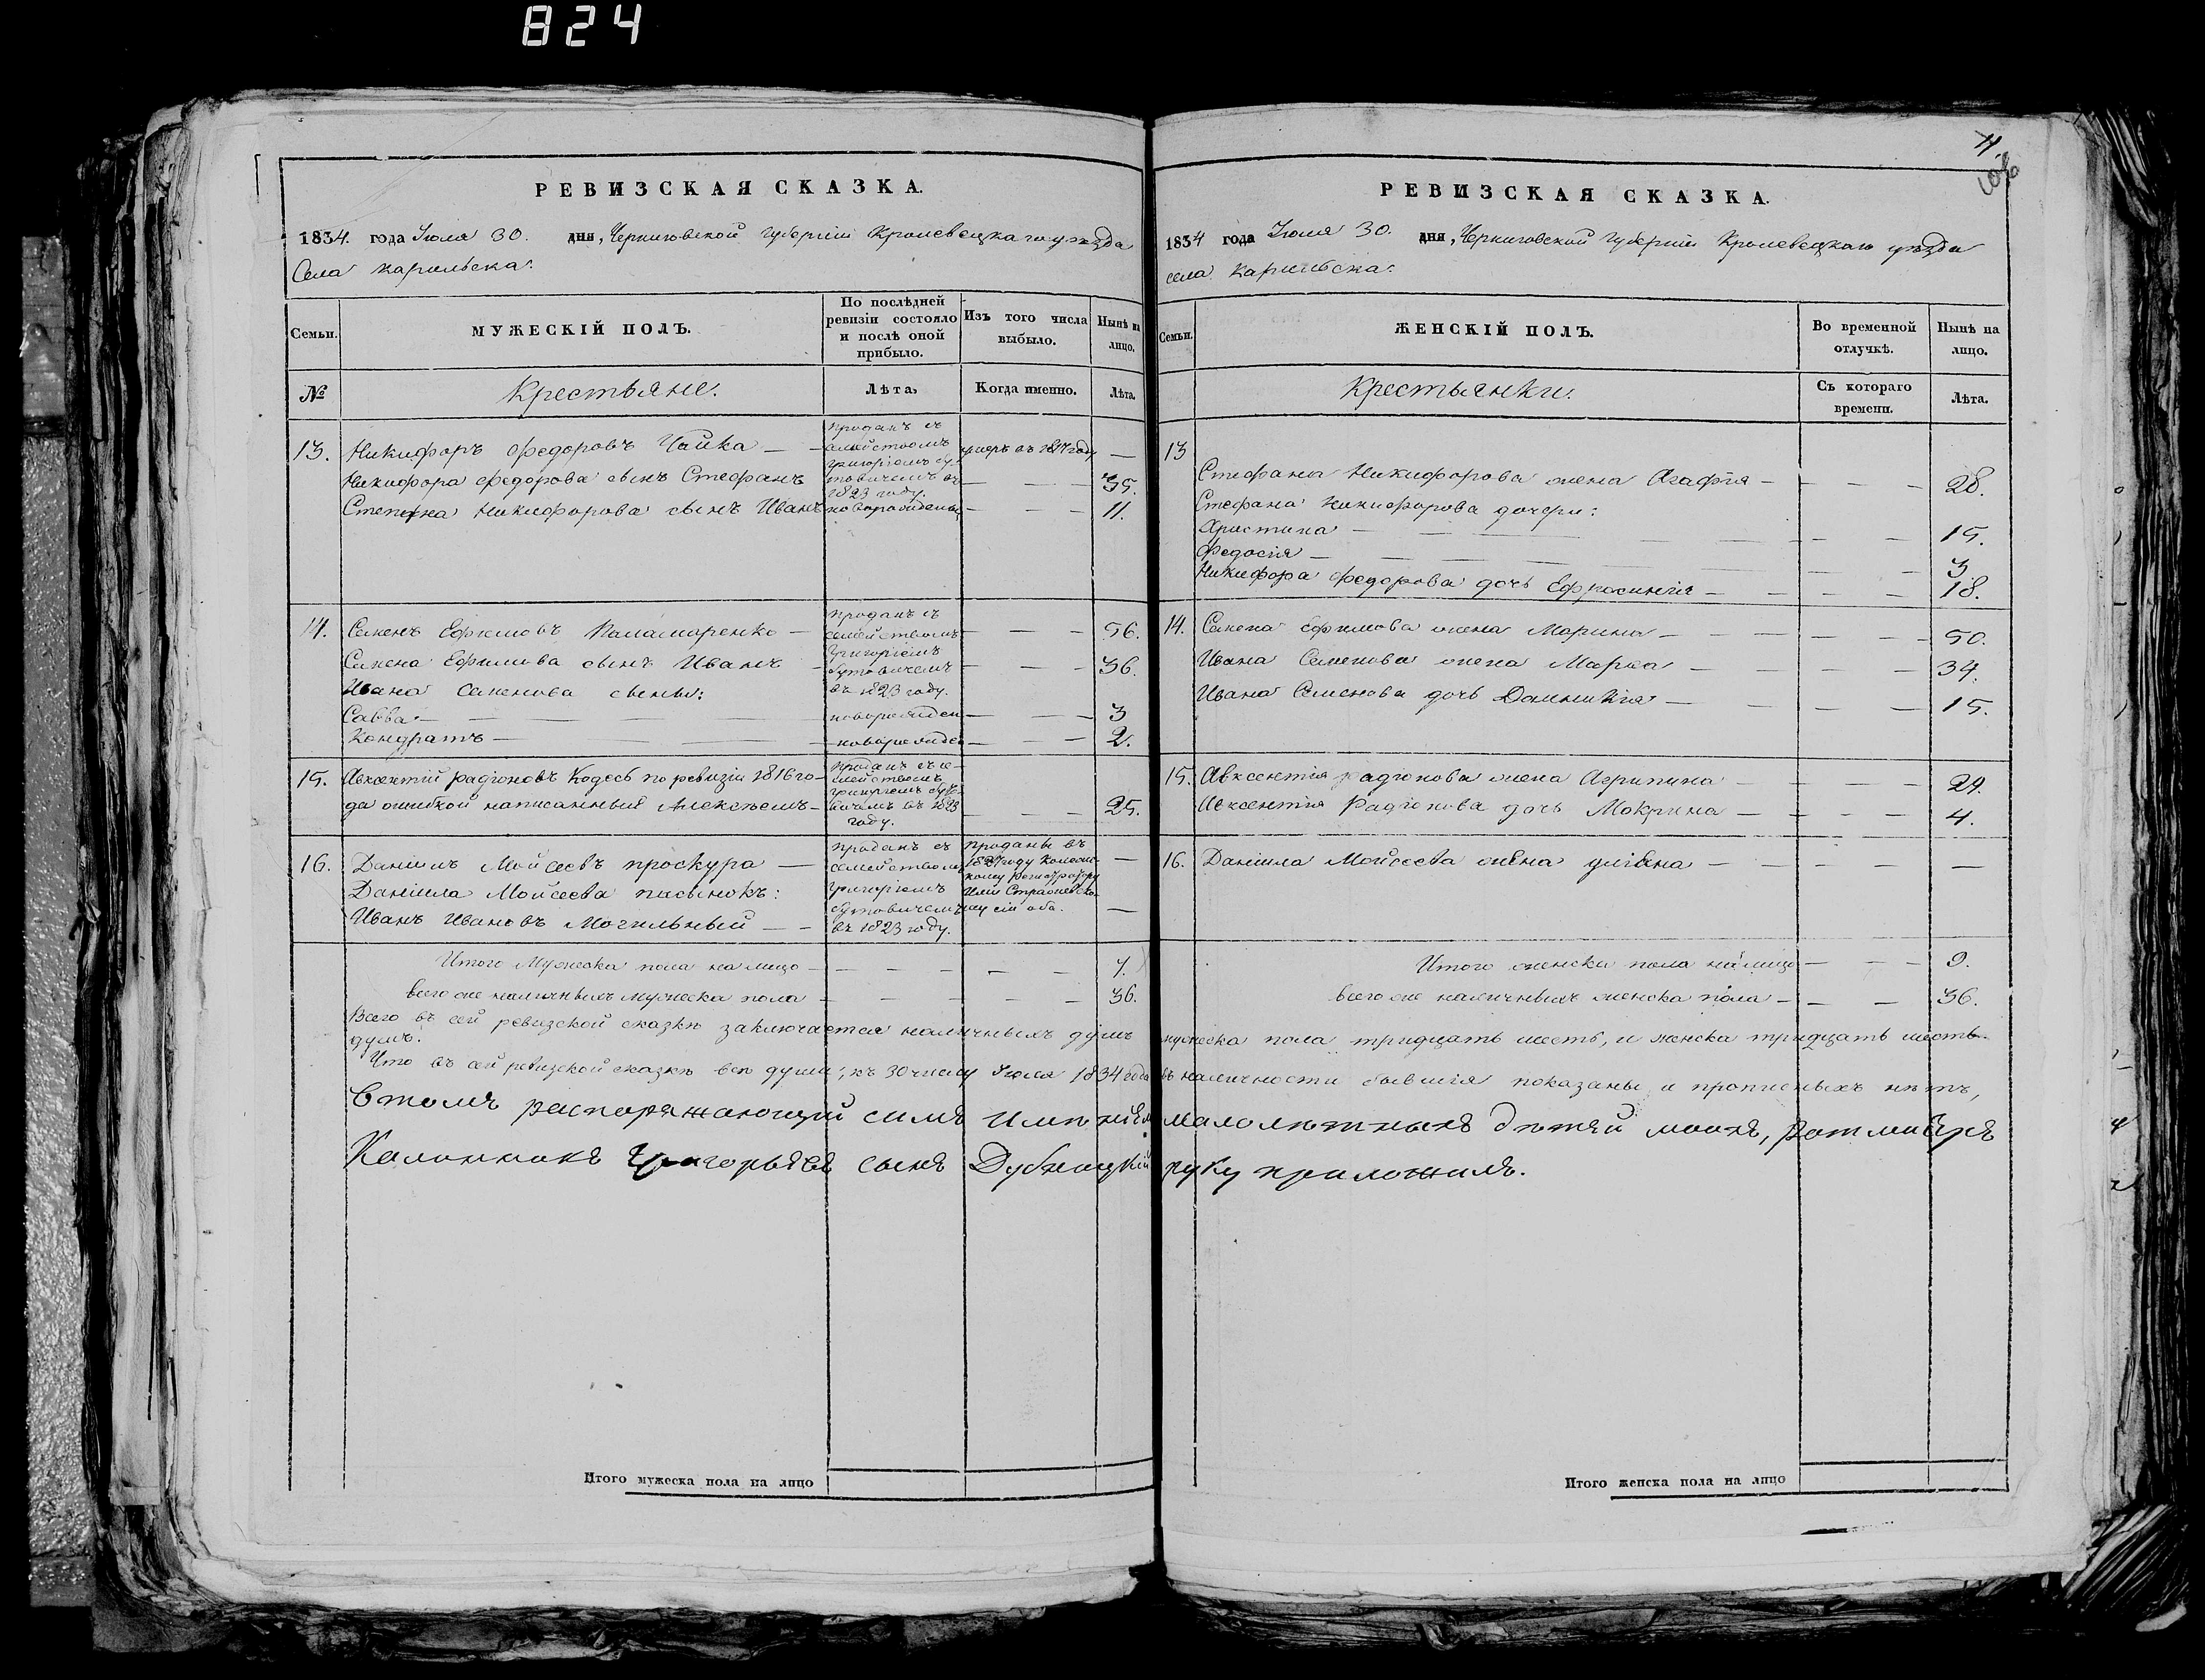 824
РЕВИЗСКАЯ СКАЗКА.
1834. года Іюля 30. дня, Черниговской губерніи Кролевецкаго уѣзда
Села Карильска.
Семьи.
МУЖЕСКІЙ ПОЛЪ.
По послѣдней ревизіи состояло и послѣ оной прибыло.
Изъ того числа выбыло.
Нынѣ на лицо.
№
Крестьяне.
Лѣта,
Когда именно.
Лѣта.
13. Никифоръ Федоровъ Чайка — проданъ съ семействомъ Григоріемъ Бутовичемъ въ 1823 году. умеръ въ 1817 году —
Никифора Федорова сынъ Стефанъ — — — 35.
Степана Никифорова сынъ Иванъ новорожденъ — — — 11.
14. Семенъ Ефимовъ Паламаренко — проданъ съ семействомъ Григоріемъ Бутовичемъ въ 1823 году. — — — 56.
Семена Ефимова сынъ Иванъ — — — — 36.
Ивана Семенова сыны:
Савва — — — новорожден — — — 3
Кондратъ — — — новорожден — — — 2.
15. Авксентій Радіоновъ Кодесь по ревизіи 1816 го- проданъ съ семействомъ Григоріемъ Бутовичемъ въ 1823 году.
да ошибкой написанный Алексѣемъ — — — — 25.
16. Даніилъ Мойсеевъ Проскура — проданъ съ семействомъ Григоріемъ Бутовичемъ въ 1823 году. проданы въ —
Даніила Мойсеева пасынокъ:
Иванъ Ивановъ Могильный — — —
Итого Мужеска пола на лицо — — — — — 7.
всего же наличныхъ мужеска пола — — — — — 36.
РЕВИЗСКАЯ СКАЗКА.
1834 года Іюля 30. дня, Черниговской губерніи Кролевецкаго уѣзда
села Карильска.
Семьи.
ЖЕНСКІЙ ПОЛЪ.
Во временной отлучкѣ.
Нынѣ на лицо.
Крестьянки.
Съ котораго времени.
Лѣта.
13
Стефана Никифорова жена Агафія — — — — 28.
Стефана Никифорова дочери:
Христина — — — — — 15.
Федосія — — — — — 3
Никифора Федорова дочь Ефросинія — — — — 18.
14. Семена Ефимова жена Марина — — — — 50.
Ивана Семенова жена Марфа — — — — 34.
Ивана Семенова дочь Домникія — — — — 15.
15. Авксентія Радіонова жена Агрипина — — — — 24.
Авксентія Радіонова дочь Мокрина — — — — 4.
16. Даніила Мойсеева жена Уліяна — — — —
Итого женска пола на лицо — — — 9.
всего же наличныхъ женска пола — — — 36.
Всего въ сей ревизской сказкѣ заключается наличныхъ душъ мужеска пола тридцать шесть, и женска тридцать шесть
душъ.
Что въ сей ревизской сказкѣ всѣ души, къ 30 числу Іюля 1834 года въ наличности бывшія показаны, и прописныхъ нѣтъ,
В томъ распоряжающій симъ имѣніемъ малолѣтныхъ дѣтей моихъ, ротмистръ
Калинникъ Григорьевъ сынъ руку приложилъ.
Итого мужеска пола на лицо
Итого женска пола на лицо